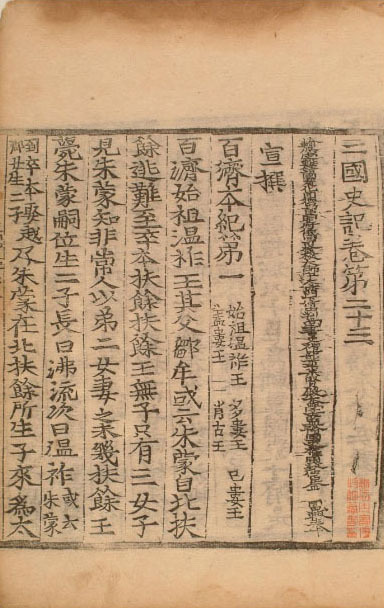 三國史記卷第二十三
宣撰
百濟本紀第一 始祖温祚王 多婁王 己婁王 盖婁王 肖古王
百濟始祖温祚王其父鄒牟或云朱蒙自北扶
餘逃難至卒夲扶餘扶餘王無子只有三女子
見朱蒙知非常人以第二女妻之未幾扶餘王
薨朱蒙嗣位生二子長曰沸流次曰温祚 或云朱蒙
到卒夲娶越郡女生二子 及朱蒙在北扶餘所生子來爲太